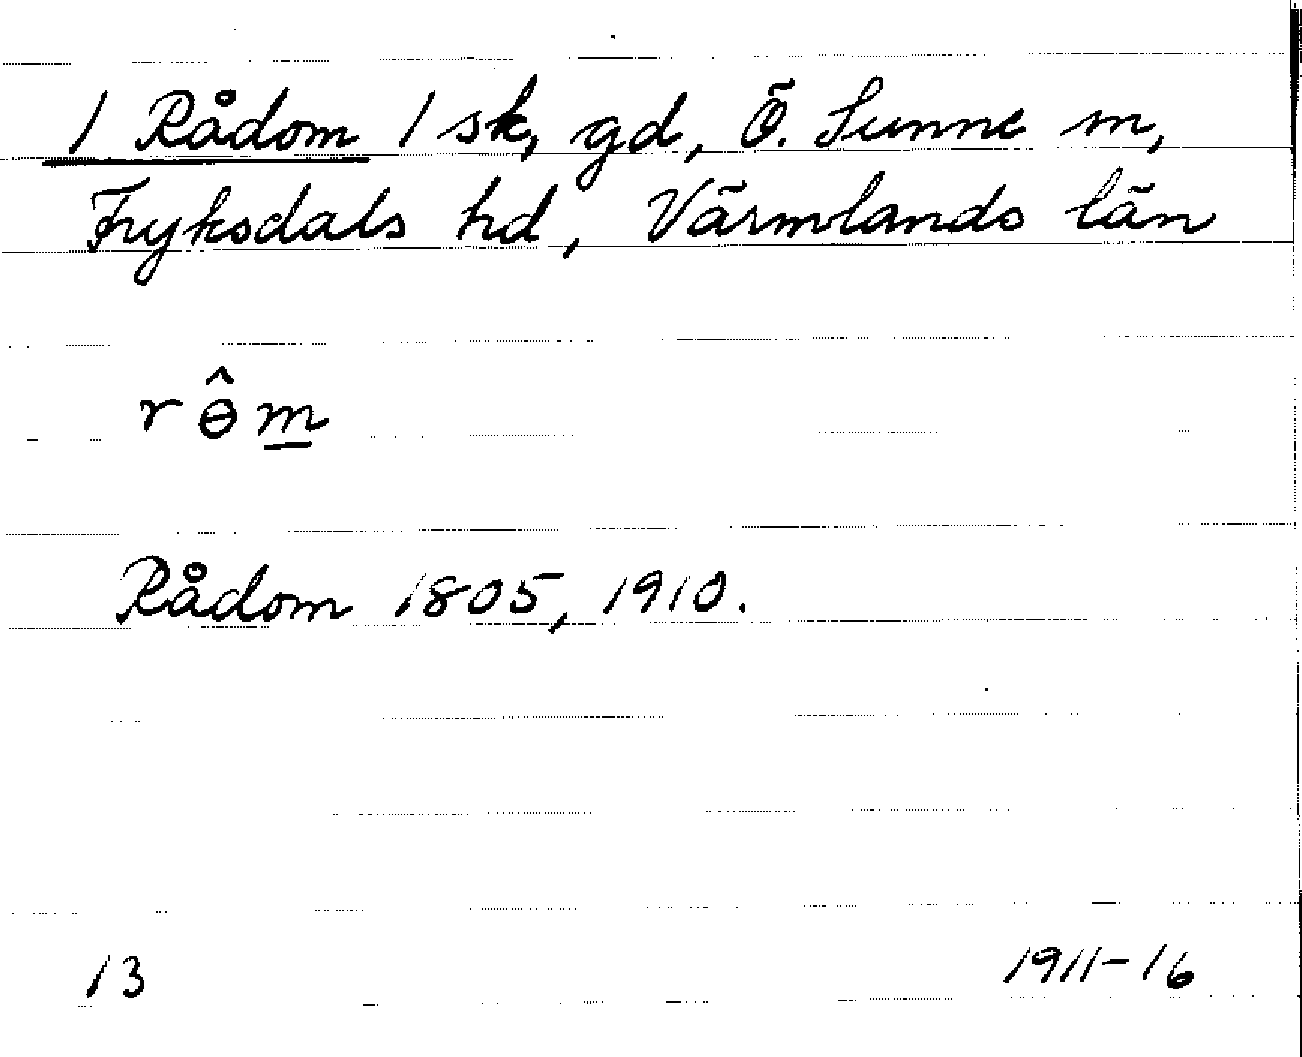 / Rådom / sk, gd, Ö. Sunne sn,
Fryksdals hd, Värmlands län
r ɵ̂ m̲
Rådom 1805, 1910.
13
1911-16